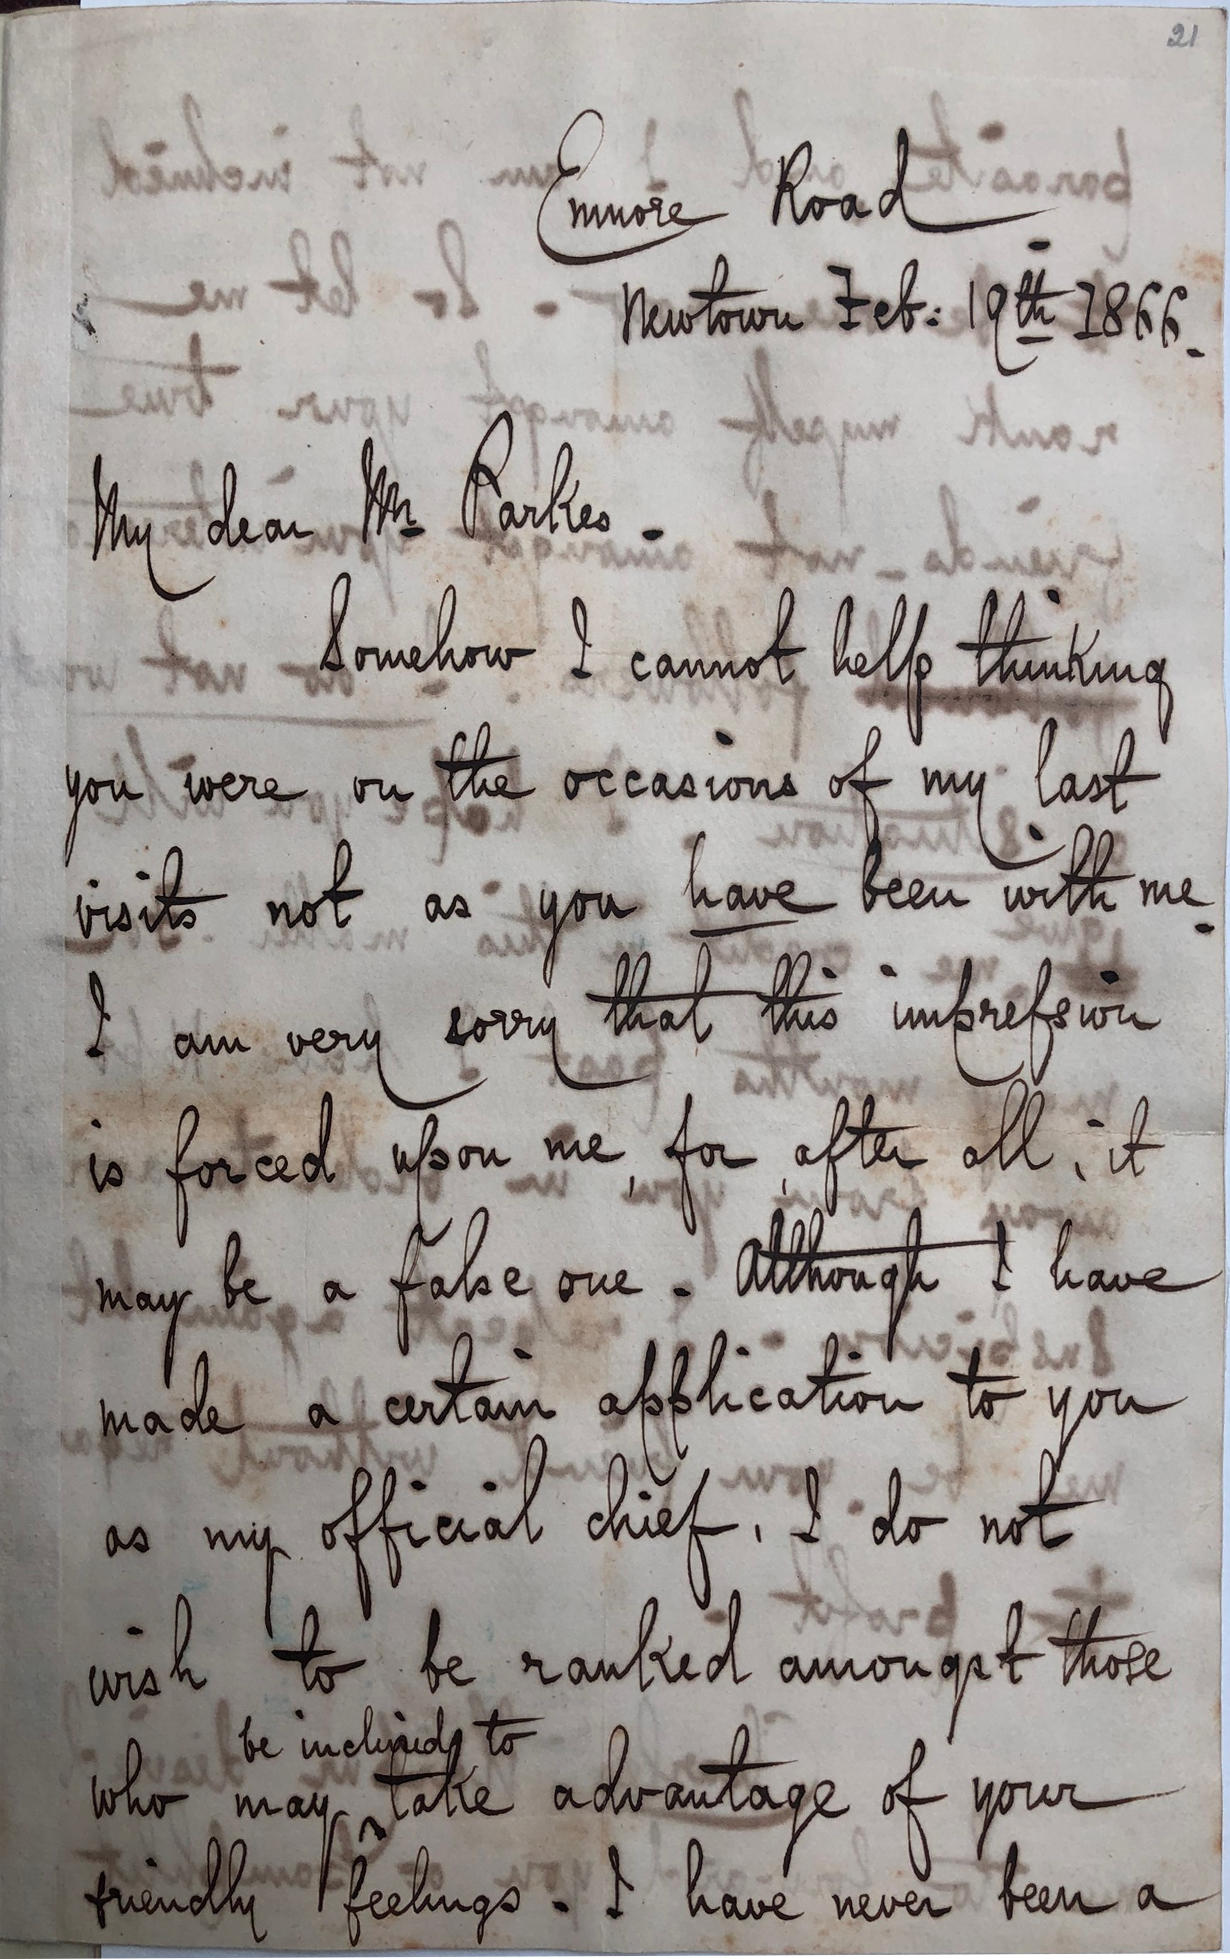 21
Enmore Road
Newtown Feb: 19th 1866.
My dear Mr Parkes.
Somehow I cannot help thinking
you were on the occasions of my last
visits not as you have been with me.
I am very sorry that this impression
is forced upon me, for, after all, it
may be a false one. Although I have
made a certain application to you
as my official chief, I do not
wish to be ranked amongst those
be inclined to
who may take advantage of your
friendly feelings. I have never been a